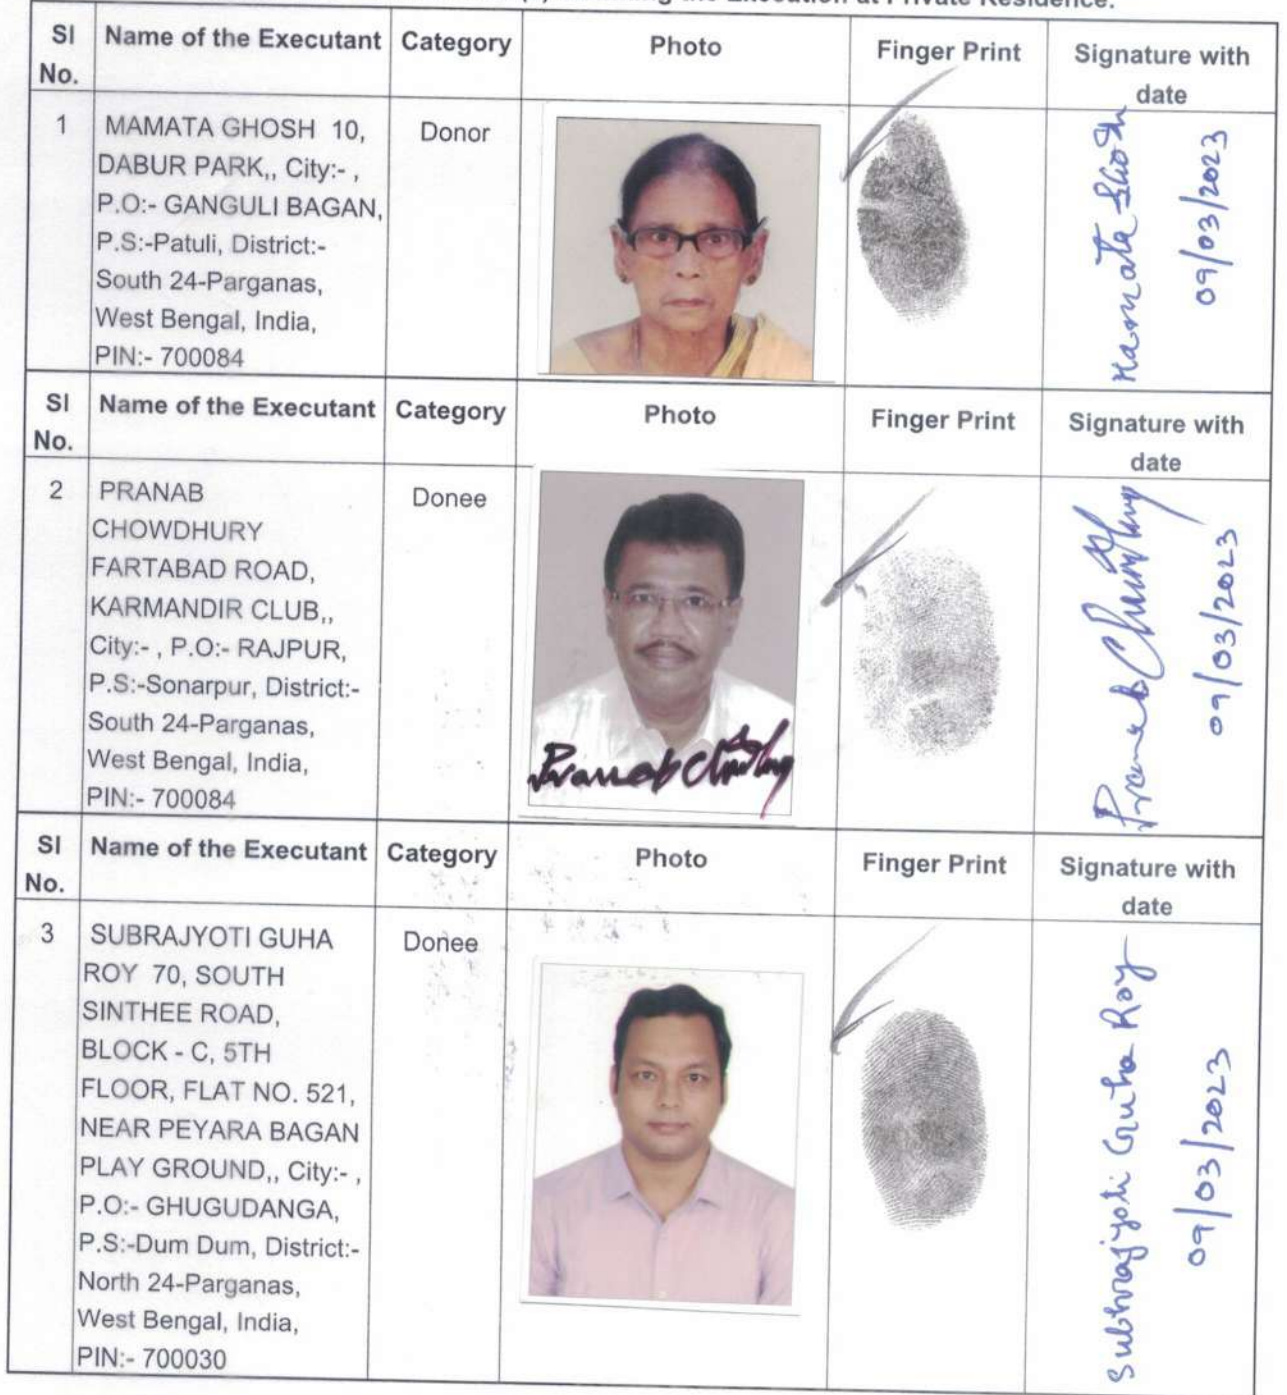 the Execution at Private Residence.
Sl No. Name of the Executant Category Photo Finger Print Signature with date
1 MAMATA GHOSH 10, Donor
DABUR PARK,, City:- ,
P.O:- GANGULI BAGAN,
P.S:-Patuli, District:-
South 24-Parganas,
West Bengal, India,
PIN:- 700084
Mamata Ghosh
09/03/2023
Sl No. Name of the Executant Category Photo Finger Print Signature with date
2 PRANAB Donee
CHOWDHURY
FARTABAD ROAD,
KARMANDIR CLUB,,
City:- , P.O:- RAJPUR,
P.S:-Sonarpur, District:-
South 24-Parganas,
West Bengal, India,
PIN:- 700084
Pranab Chowdhury
Pranab Chowdhury
09/03/2023
Sl No. Name of the Executant Category Photo Finger Print Signature with date
3 SUBRAJYOTI GUHA Donee
ROY 70, SOUTH
SINTHEE ROAD,
BLOCK - C, 5TH
FLOOR, FLAT NO. 521,
NEAR PEYARA BAGAN
PLAY GROUND,, City:- ,
P.O:- GHUGUDANGA,
P.S:-Dum Dum, District:-
North 24-Parganas,
West Bengal, India,
PIN:- 700030
Subhrajyoti Guha Roy
09/03/2023